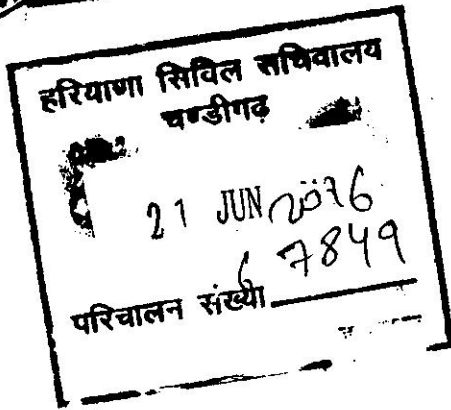 हरियाणा सिविल सचिवालय
चण्डीगढ़
21 JUN 2016
7849
परिचालन संख्या